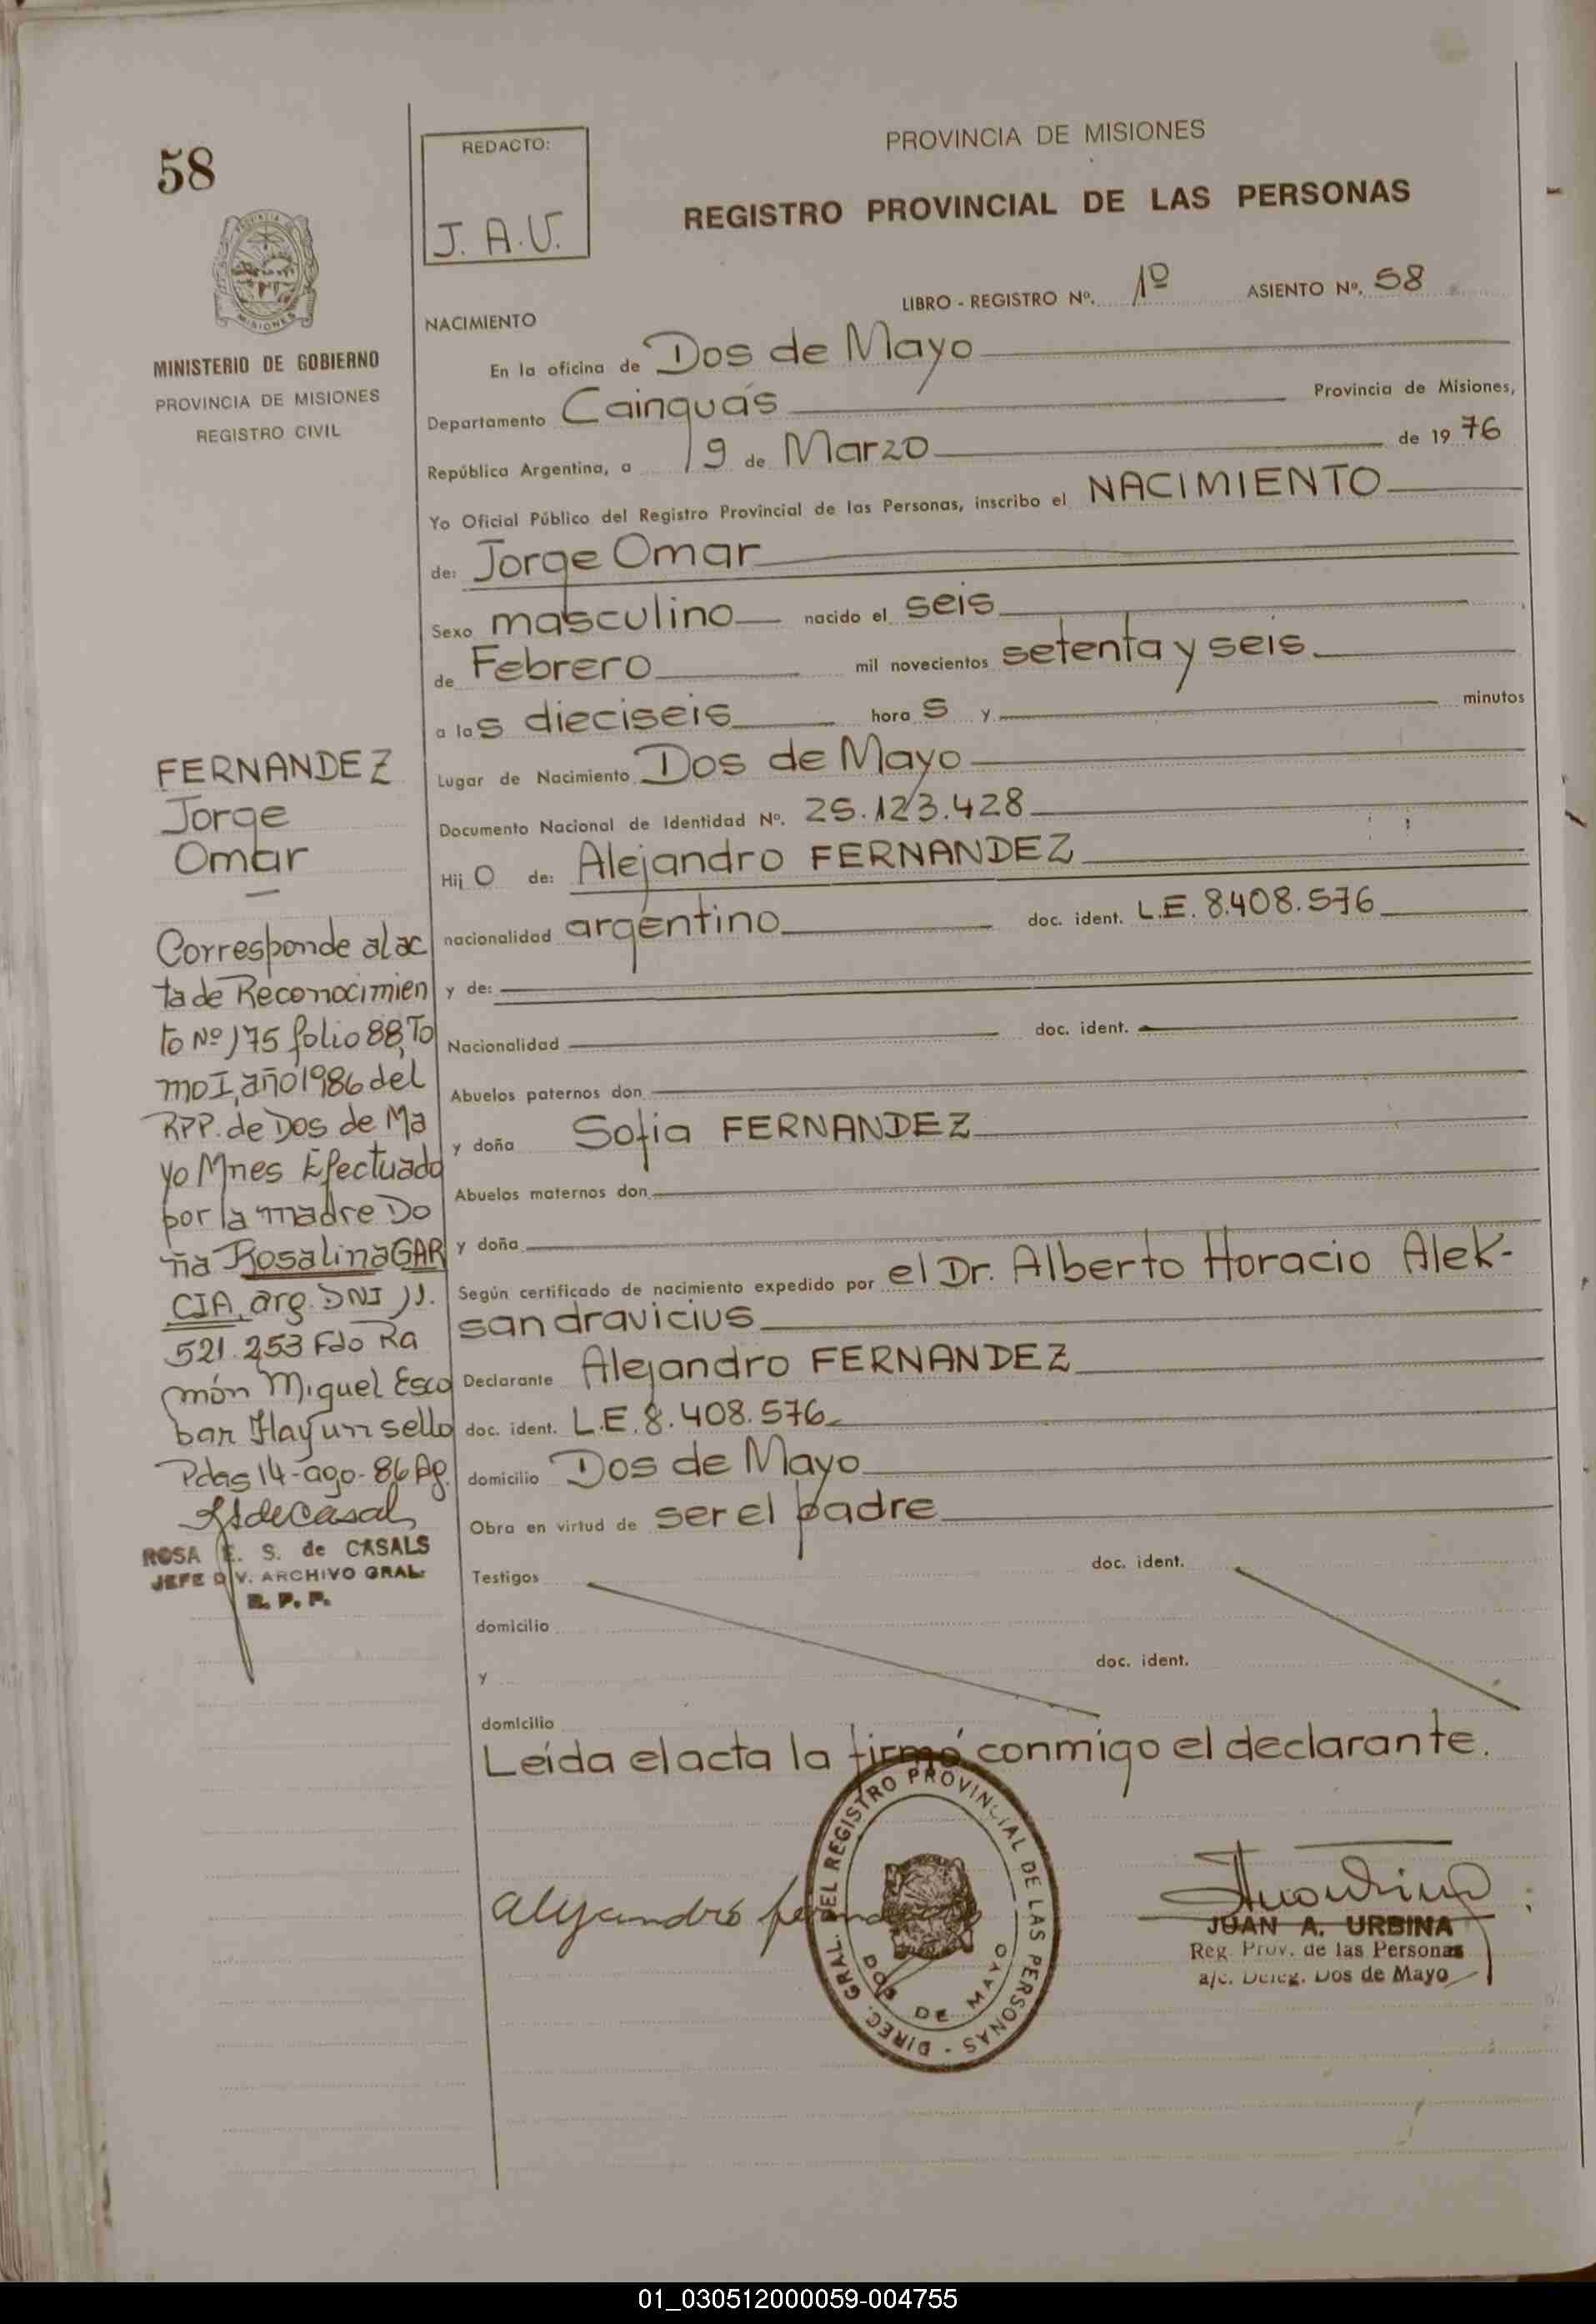 58
REDACTO:
J. A. U.
PROVINCIA DE MISIONES
REGISTRO PROVINCIAL DE LAS PERSONAS
LIBRO - REGISTRO Nº. 1º ASIENTO Nº. 58
MISIONES
MINISTERIO DE GOBIERNO
PROVINCIA DE MISIONES
REGISTRO CIVIL
NACIMIENTO
En la oficina de Dos de Mayo
Departamento Cainguás Provincia de Misiones,
República Argentina, a 19 de Marzo de 1976
Yo Oficial Público del Registro Provincial de las Personas, inscribo el NACIMIENTO
de: Jorge Omar
Sexo masculino nacido el seis
de Febrero mil novecientos setenta y seis
a las dieciseis horas y minutos
Lugar de Nacimiento Dos de Mayo
Documento Nacional de Identidad Nº. 25.123.428
Hijo de: Alejandro FERNANDEZ
nacionalidad argentino doc. ident. L.E. 8.408.576
y de:
Nacionalidad doc. ident.
Abuelos paternos don
y doña Sofia FERNANDEZ
Abuelos maternos don
y doña
Según certificado de nacimiento expedido por el Dr. Alberto Horacio Alek-
sandravicius
Declarante Alejandro FERNANDEZ
doc. ident. L.E. 8.408.576
domicilio Dos de Mayo
Obra en virtud de ser el padre
Testigos doc. ident.
domicilio
y doc. ident.
domicilio
Leída el acta la firmó conmigo el declarante.
FERNANDEZ
Jorge
Omar
Corresponde al ac
ta de Reconocimien
to Nº 175 folio 88, To
mo I, año 1986 del
RPP. de Dos de Ma
yo Mnes Efectuado
por la madre Do
ña Rosalina GAR
CIA, arg. DNI 11.
521.253 Fdo Ra
món Miguel Esco
bar Hay un sello
Pdas 14-ago-86 Ag.
ROSA E. S. de CASALS
JEFE DIV. ARCHIVO GRAL.
R. P. P.
Alejandro fernandez
DIREC. GRAL. DEL REGISTRO PROVINCIAL DE LAS PERSONAS -
DOS DE MAYO
JUAN A. URBINA
Reg. Prov. de las Personas
a/c. Deleg. Dos de Mayo
01_030512000059-004755